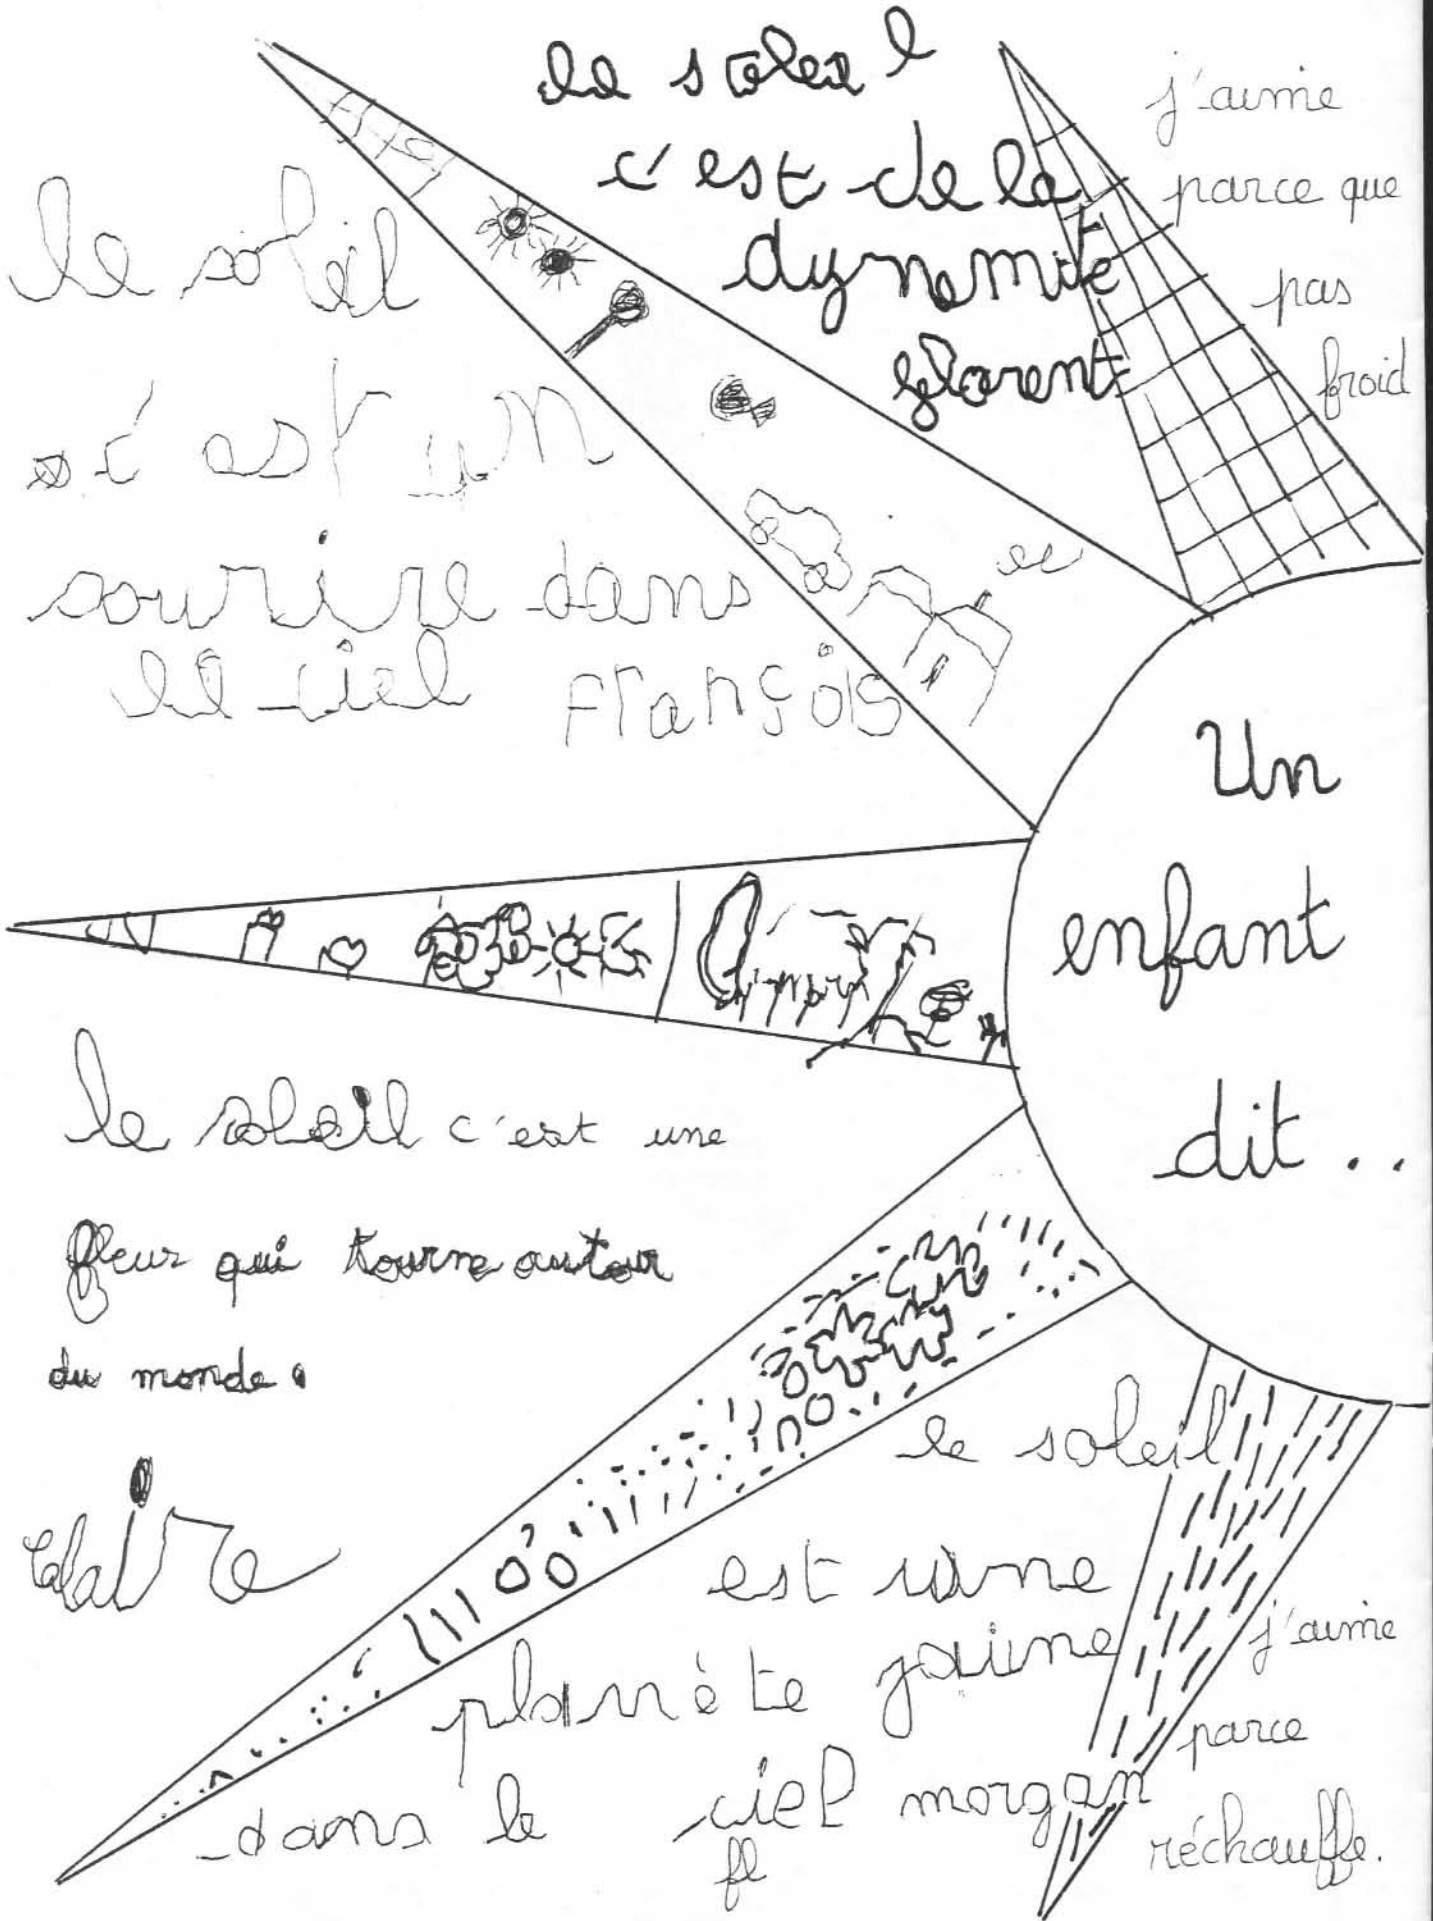 le soleil
c'est de la
dynamite
florent
j'aime
parce que
pas
froid
le soleil
c'est un
sourire dans
le ciel françois
Un
enfant
dit ..
le soleil c'est une
fleur qui tourne autour
du monde.
claire
le soleil
est une
planète jaune
dans le ciel morgan
fl
j'aime
parce
réchauffe.